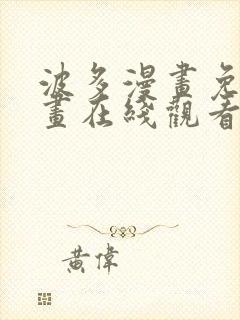 波多漫畫免
畫在綫觀看
黄偉